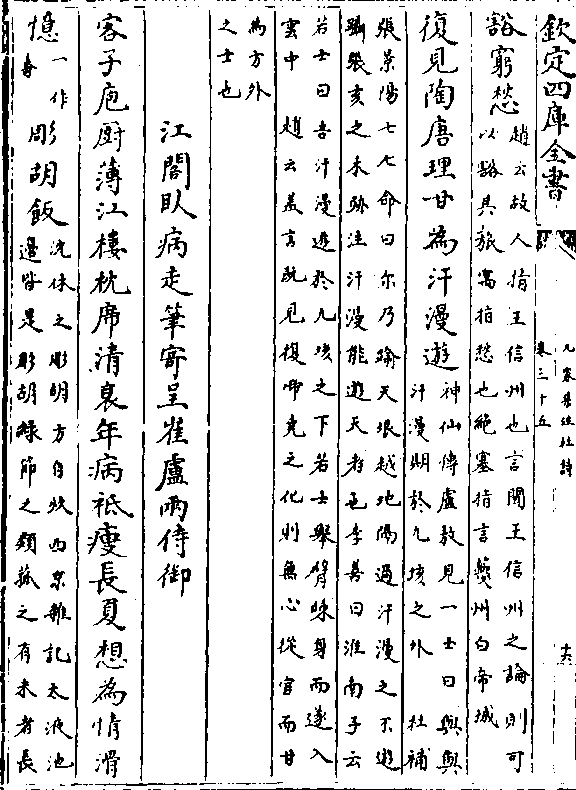 欽定四庫全書
九家集注杜詩
卷三十五
十六
豁窮愁趙云故人指王信州也言聞王信州之論則可
以豁其旅寓指愁也絶塞指言夔州白帝城
復見陶唐理甘為汗漫遊神仙傳盧敖見一士曰與與
汗漫期於九垓之外 杜補
張景陽七七命曰尔乃踰天垠越地隔過汗漫之不遊
躡張亥之未跡注汗漫能遊天者也李善曰淮南子云
若士曰吾汗漫遊於九垓之下若士舉臂竦身而遂入
雲中 趙云蓋言既見復帝堯之化則無心從官而甘
為方外
之士也
江閣臥病走筆寄呈崔盧兩侍御
客子庖厨薄江樓枕席清衰年病祗瘦長夏想為情滑
憶一作
彫胡飯沈休之彫明方自炊 西京雜記太液池
邊皆是彫胡綠節之類菰之有米者長